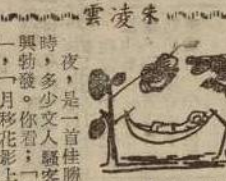 朱凌雲
夜，是一首佳勝
時，多少文人騷客
興勃發。你看；「
一，「月移花影上